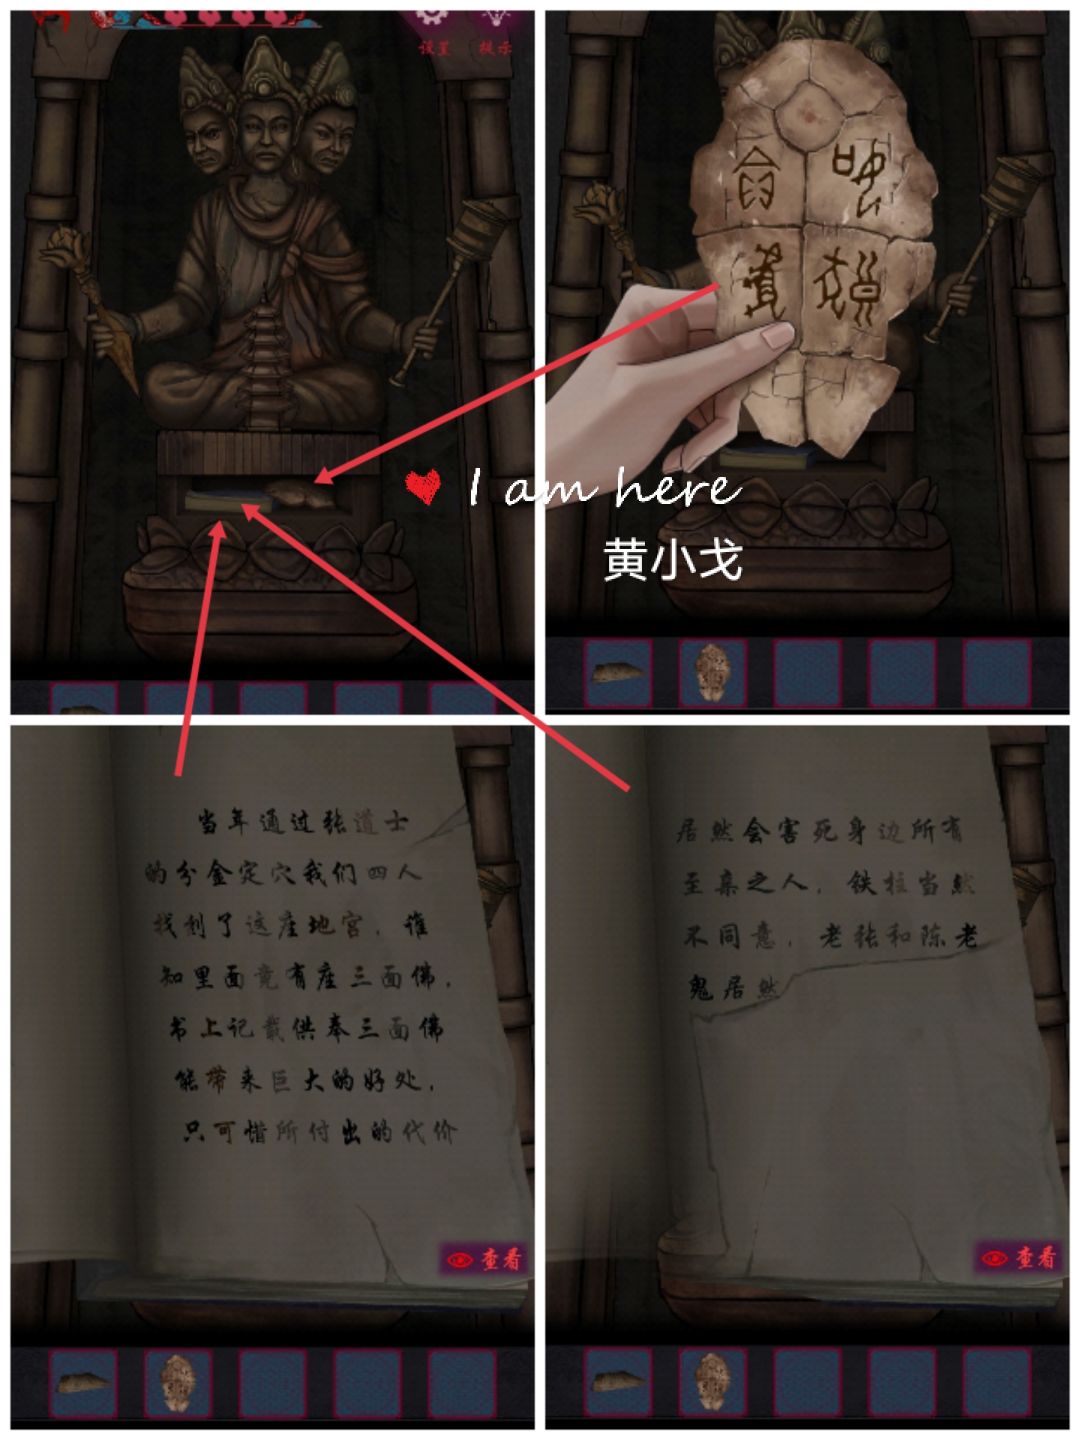 设置 提示
I am here
黄小戈
当年通过张道士
的分金定穴我们四人
找到了这座地宫，谁
知里面竟有座三面佛，
书上记载供奉三面佛
能带来巨大的好处，
只可惜所付出的代价
查看
居然会害死身边所有
至亲之人，铁柱当然
不同意，老张和陈老
鬼居然
查看